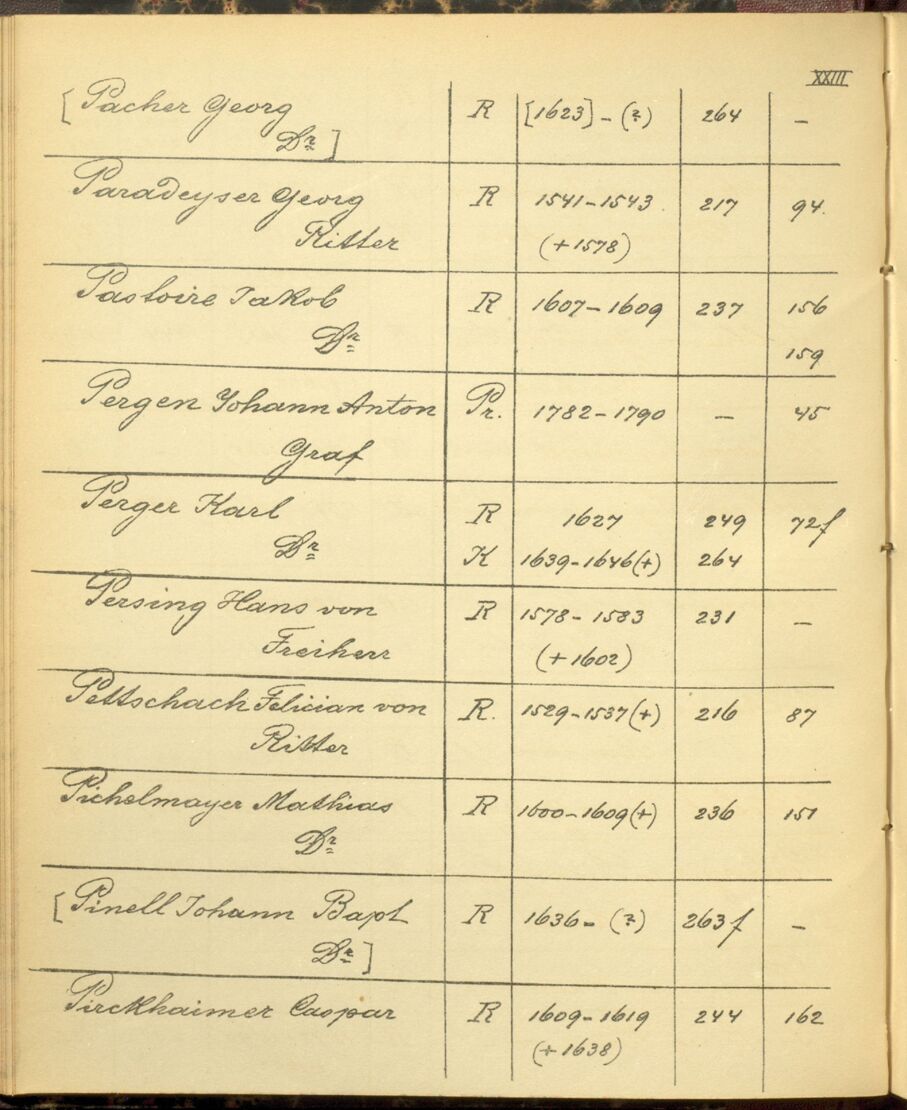 XXIII
[Pacher Georg R [1623] - (?) 264 -
Dr]
Paradeyser Georg R 1541-1543 217 94.
Ritter (+1578)
Pastoire Jakob R 1607-1609 237 156
Dr 159
Pergen Johann Anton Pr. 1782-1790 - 45
Graf
Perger Karl R 1627 249 72f
Dr K 1639-1646(+) 264
Persing Hans von R 1578-1583 231 -
Freiherr (+1602)
Pettschach Felician von R. 1529-1537(+) 216 87
Ritter
Pichelmayer Mathias R 1600-1609(+) 236 151
Dr
[Pinell Johann Bapt R 1636- (?) 263f -
Dr]
Pirckhaimer Caspar R 1609-1619 244 162
(+1638)